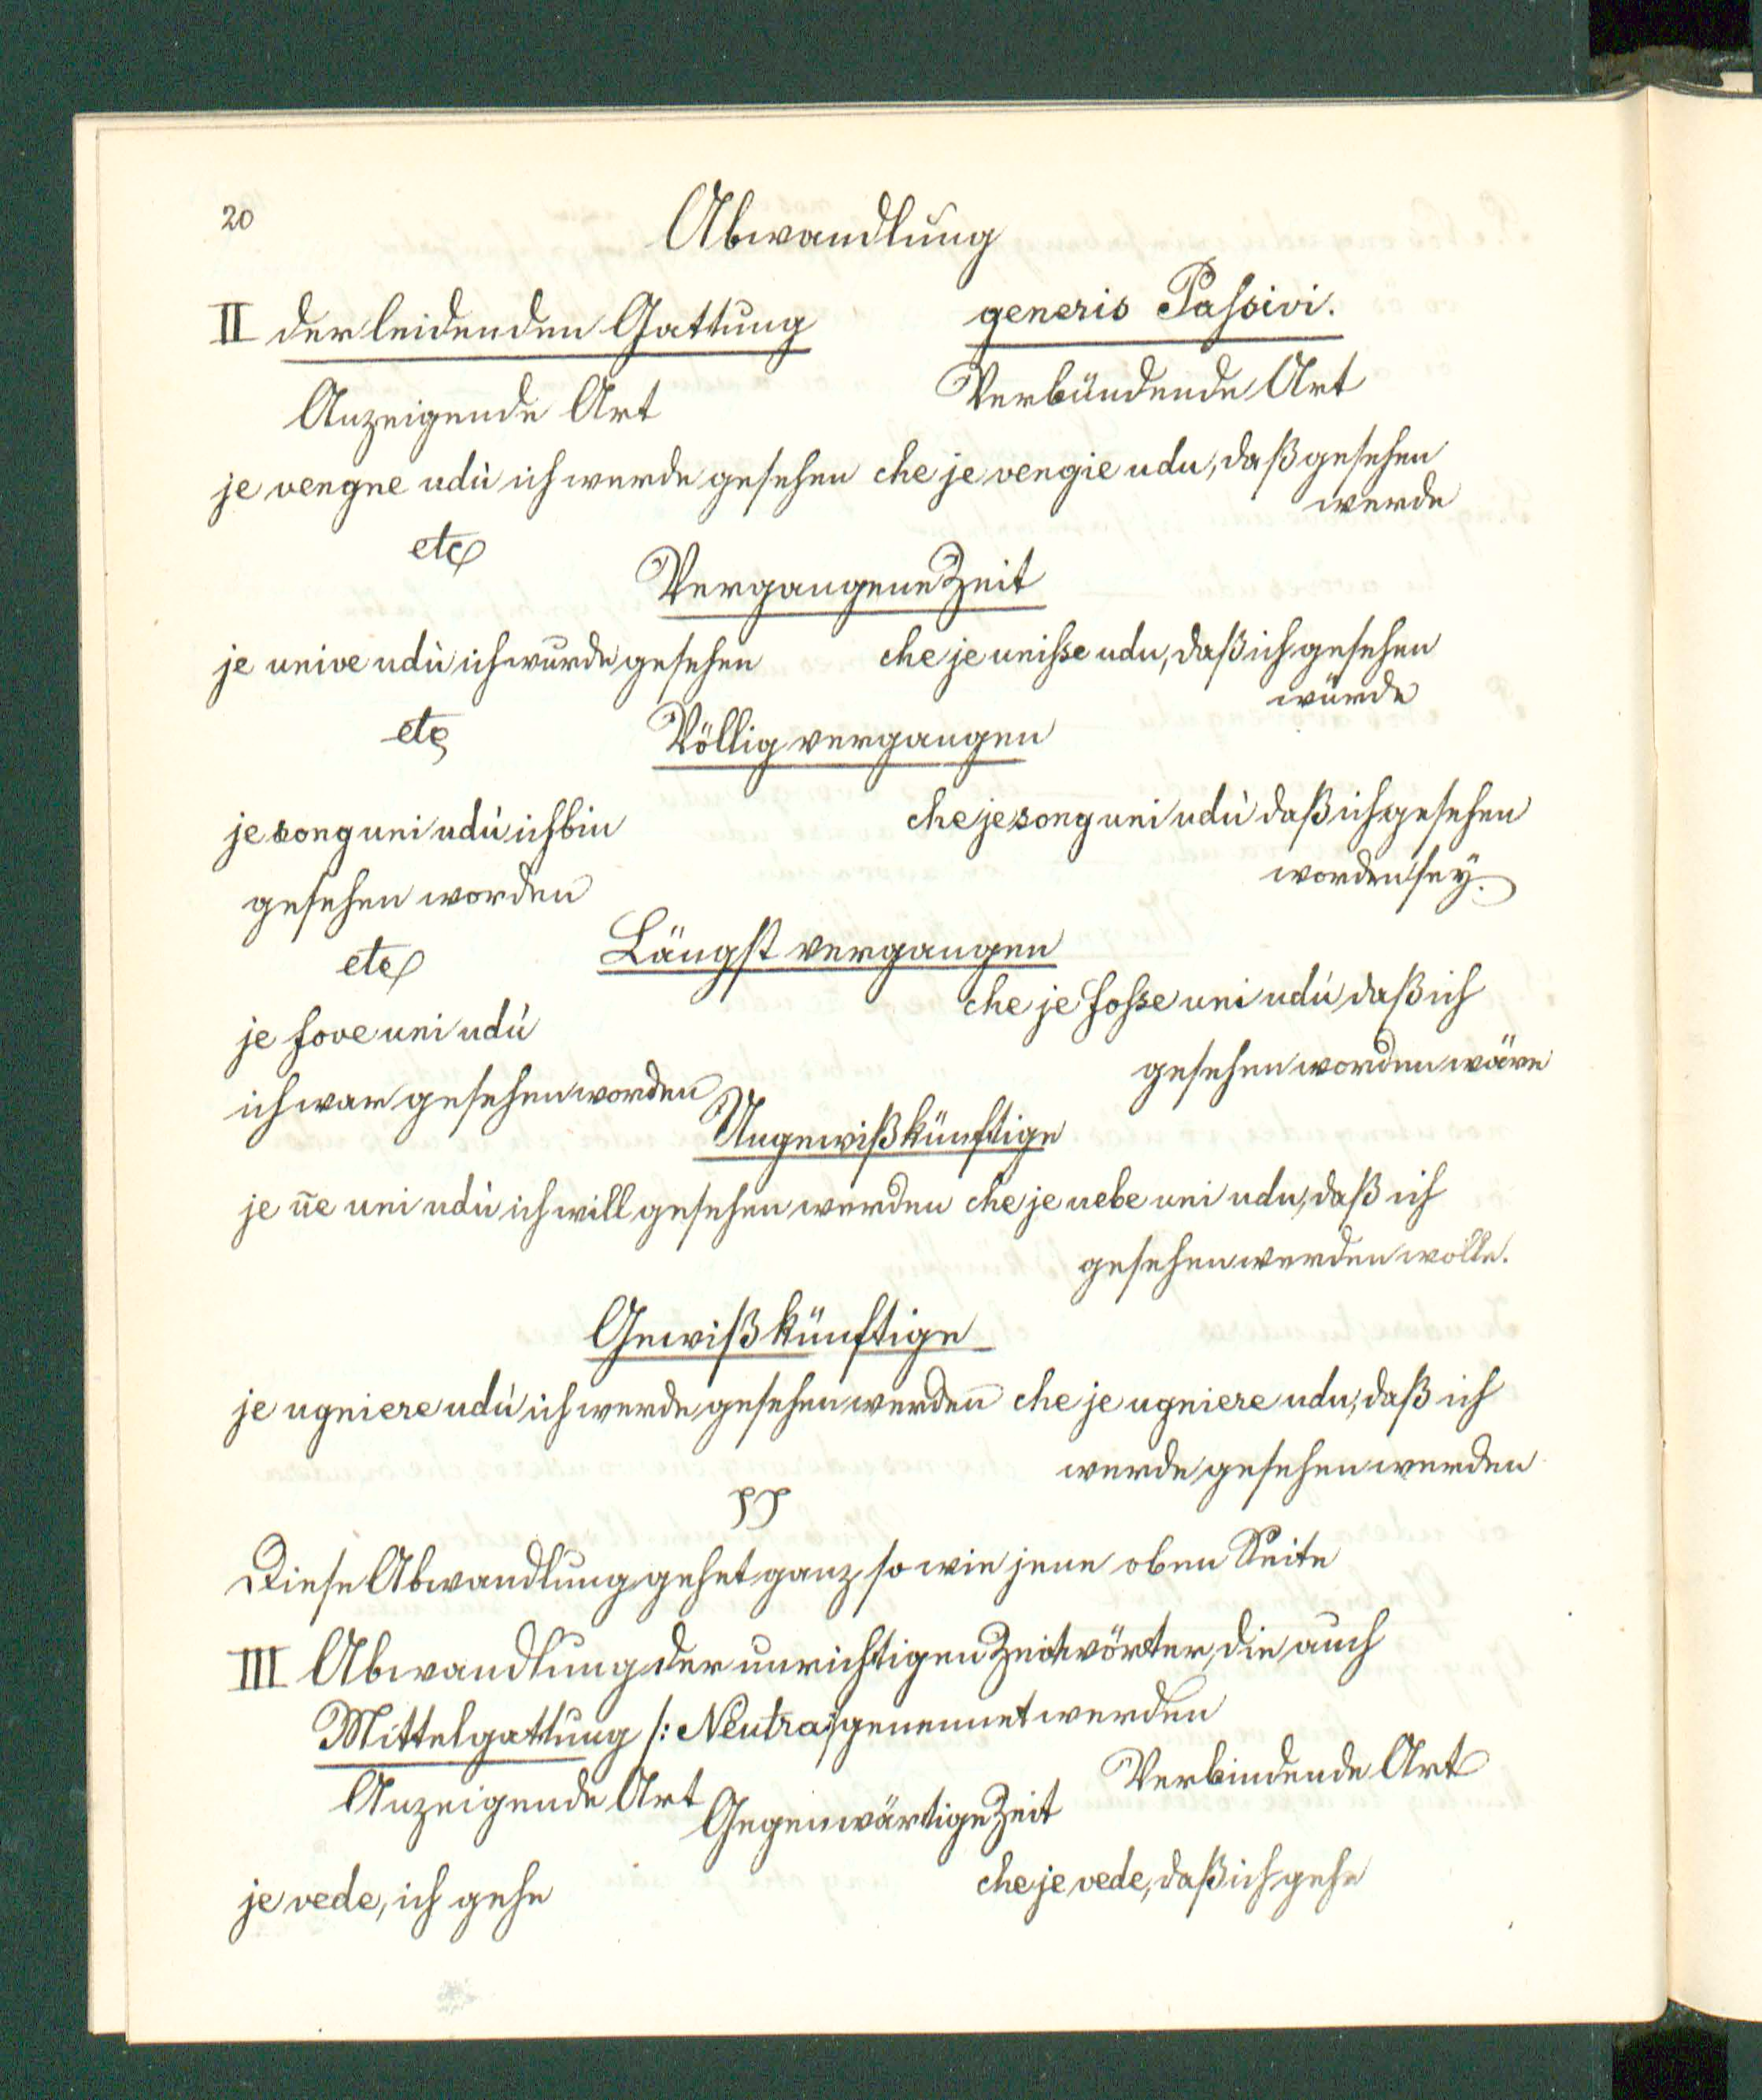 20
Abwandlung
II der leidenden Gattung generis Passivi.
Anzeigende Art Verbündende Art
je vengne udù ich werde gesehen che je vengie udu, daß gesehen
werde
etc
Vergangene Zeit
je unive udù ich wurde gesehen che je unisse udu, daß ich gesehen
würde
etc
Völlig vergangen
je song uni udù ich bin che je song uni udù daß ich gesehen
gesehen worden worden sey.
etc
Längst vergangen
je fove uni udù che je fosse uni udù daß ich
ich war gesehen worden gesehen worden wäre
Ungewiß künftige
je ūe uni udù ich will gesehen werden che je uebe uni udu, daß ich
gesehen werden wolle.
Gewiß künftige
je ugniere udù ich werde gesehen werden che je ugniere udu, daß ich
werde gesehen werden
Diese Abwandlung gehet ganz so wie jene oben Seite
III Abwandlung der unrichtigen Zeitwörter, die auch
Mittelgattung /: Neutra :/ genennet werden
Anzeigende Art Verbindende Art
Gegenwärtige Zeit
je vede, ich gehe che je vede, daß ich gehe